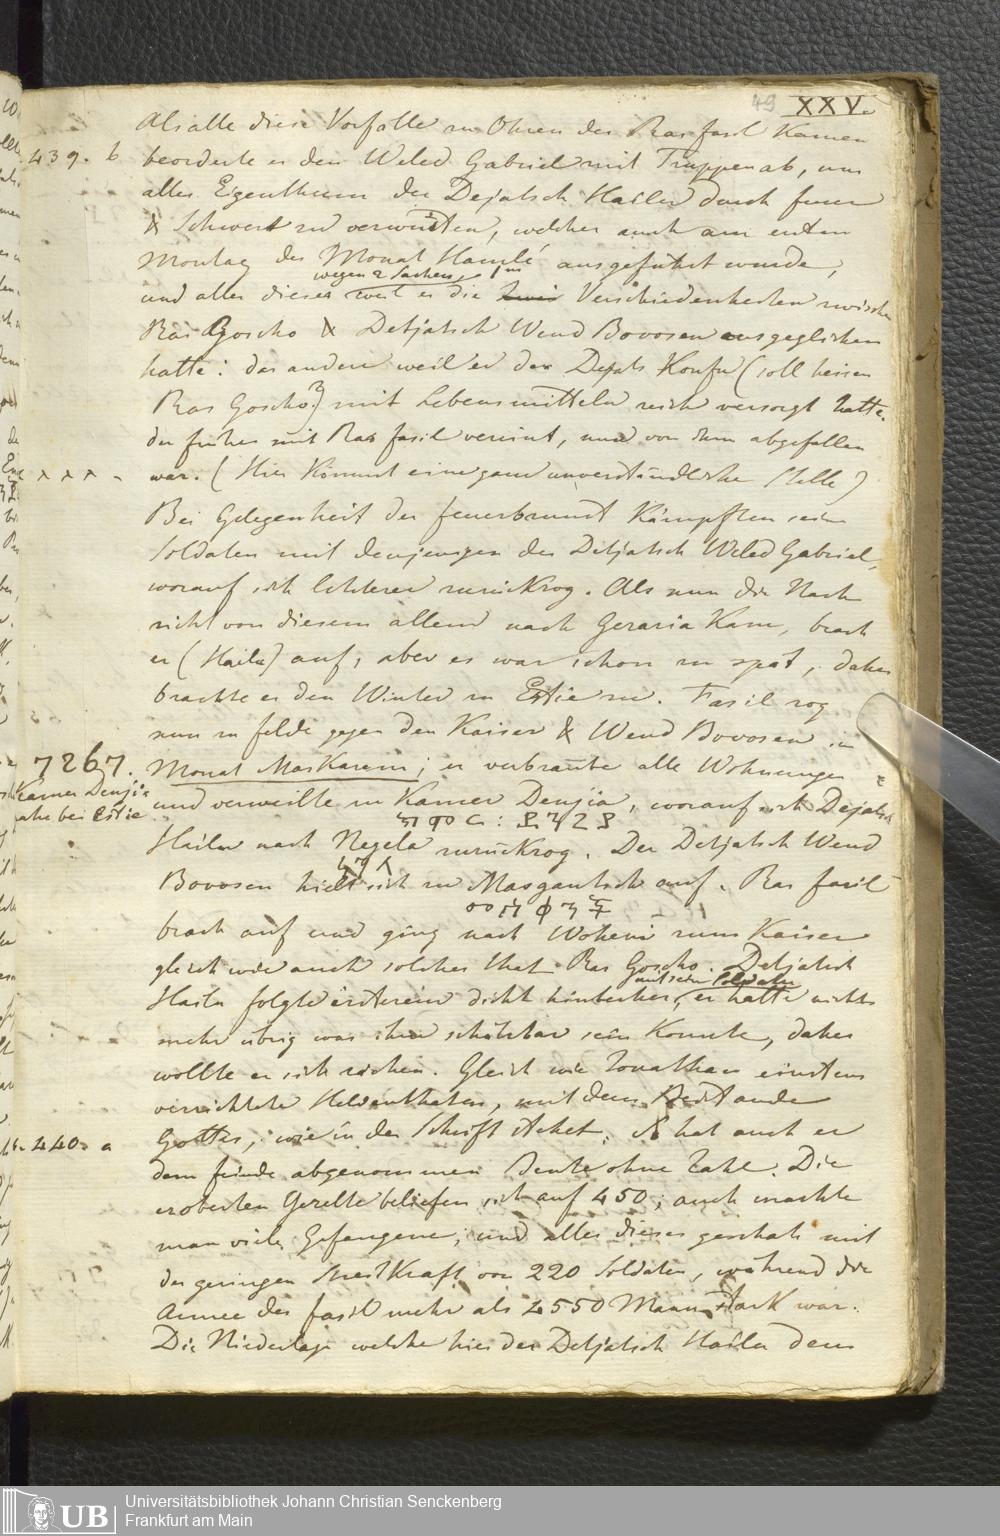 49 XXV.
Als alle diese Vorfälle zu Ohren des Ras fasil Kamen
439. b beorderte er den Weled Gabriel mit Truppen ab, um
alles Eigenthum des Dejatsch Hailu durch feuer
& Schwert zu verwüsten, welches auch am ersten
Montag des Monat Hamlé ausgeführt wurde,
wegen 2 Sachen, 1m
und alles dieses weil er die Verschiedenheiten zwischen
Ras Goscho & Detjatsch Wend Bovosen ausgeglichen
hatte: das andere weil er den Dejats Konfu (soll heissen
Ras Goscho?) mit Lebensmitteln reich versorgt hatte.
der früher mit Ras fasil vereint, und von ihm abgefallen
x x x war. (Hier Kömmt eine ganz unverständliche Stelle)
Bei Gelegenheit der feuerbrunst Kämpften seine
Soldaten mit denjenigen des Detjatsch Weled Gabriel,
worauf sich letzterer zurückzog. Als nun die Nach
richt von diesem allem nach Geraria Kam, brach
er (Hailu) auf, aber es war schon zu spät, daher
brachte er den Winter in Estie zu. Fasil zog
nun zu felde gegen den Kaiser & Wend Bovosen im
7267. Monat Maskarem; er verbrannte alle Wohnungen
Kamer Denjia
nahe bei Estie
und verweilte in Kamer Denjia, worauf sich Dejatsch
Hailu nach Negela zurückzog. Der Detjatsch Wend
Bovosen hielt sich zu Masgantsch auf. Ras fasil
brach auf und ging nach Woheni zum Kaiser
gleich wie auch solches that Ras Goscho. Detjatsch
mit seinen Soldaten
Hailu folgte ersterem dicht hinterher, er hatte nichts
mehr übrig was ihm schätzbar sein Konnte, daher
wollte er sich rächen. Gleich wie Jonathan einstens
verrichtete Heldenthaten, mit dem Beistande
440. a Gottes, wie in der Schrift stehet. So hat auch er
dem feinde abgenommen Beute ohne Zahl. Die
eroberten Gezelte beliefen sich auf 450; auch machte
man viele Gefangene; und alles dieses geschah mit
der geringen Streitkraft von 220 Soldaten, während die
Armee des fasil mehr als 4550 Mann stark war.
Die Niederlage welche hier der Detjatsch Hailu dem
UB
Universitätsbibliothek Johann Christian Senckenberg
Frankfurt am Main